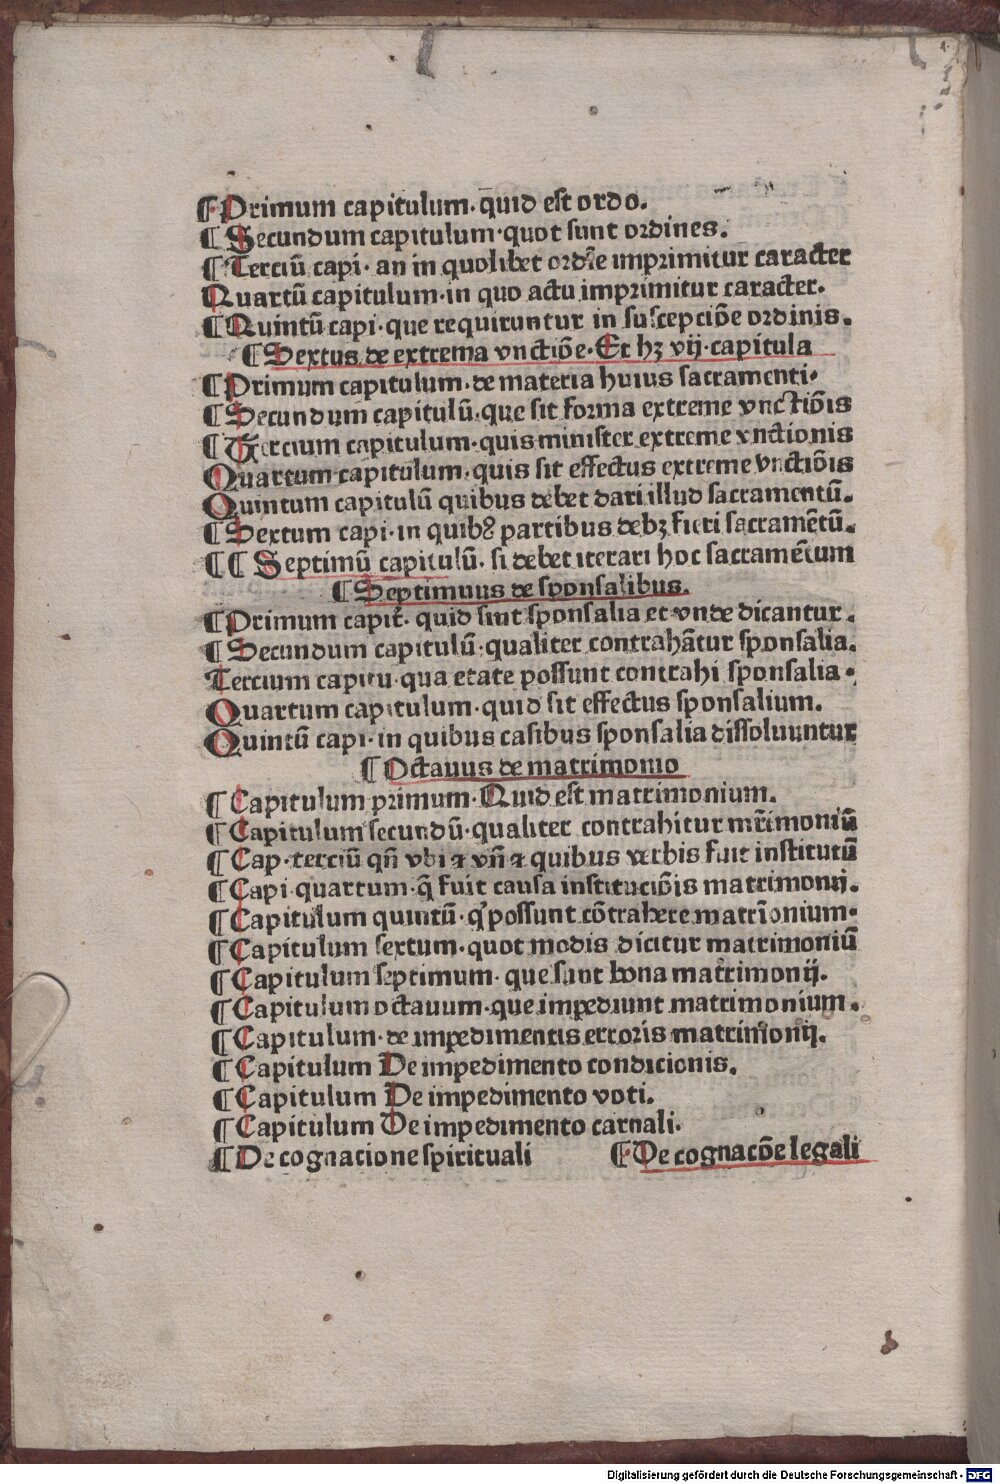 ¶ Primum capitulum· q̄uid est ordo.
¶ Secundum capitulum·quot sunt ordines.
¶ Terciū capi· an in quolibet ordīe imprimitur caracter
Quartū capitulum·in quo actu imprimitur caracter.
¶ Quintū capi·que requiruntur in suscepciōe ordinis.
¶ Sextus de extrema vnctiōe·Et hꝫ vij·capitula
¶ Primum capitulum·de materia huius sacramenti·
¶ Secundum capitulū·que sit forma extreme vnctiōis
¶ Tercium capitulum·quis minister extreme vnctionis
Quartum capitulum·quis sit effectus extreme vnctiōis
Quintum capitulū quibus debet dari illud sacramentū.
¶ Sextum capi·in quibꝰ partibus debꝫ fieri sacramētū.
¶ ¶ Septimū capitulū· si debet iterari hoc sacramētum
¶ Septimuus de sponsalibus.
¶ Primum capit̄· quid sint sponsalia et vnde dicantur.
¶ Secundum capitulū·qualiter contrahātur sponsalia.
Tercium capitu·qua etate possunt contrahi sponsalia·
Quartum capitulum·quid sit effectus sponsalium.
Quintū capi·in quibus casibus sponsalia dissoluuntur
¶ Octauus de matrimonio
¶ Capitulum primum·Quid est matrimonium.
¶ Capitulum secundū·qualiter contrahitur mr̄imoniū
¶ Cap·terciū qn̄ vbi ⁊ vn̄ ⁊ quibus verbis fuit institutū
¶ Capi quartum·q̄ fuit causa instituciōis matrimonij.
¶ Capitulum quintū·q̄ possunt cōtrahere matrīonium·
¶ Capitulum sextum·quot modis dicitur matrimoniū
¶ Capitulum septimum· que sunt bona matrimonij.
¶ Capitulum octauum·que impediunt matrimonium.
¶ Capitulum·de impedimentis erroris matrimonij.
¶ Capitulum De impedimento condicionis.
¶ Capitulum De impedimento voti.
¶ Capitulum De impedimento carnali.
¶ De cognacione spirituali ¶ De cognacōe legali
Digitalisierung gefördert durch die Deutsche Forschungsgemeinschaft - DFG